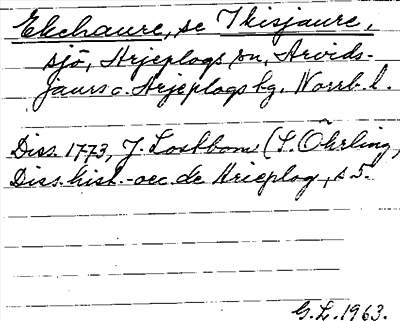 Ekchaure, se Ikisjaure,
sjö, Arjeplogs sn, Arvids-
jaurs o. Arjeplogs tg. Norrb. l.
Diss. 1773, J. Lostbom (S. Öhrling,
Diss. hist.-oec. de Arieplog, s. 5.
G.L. 1963.